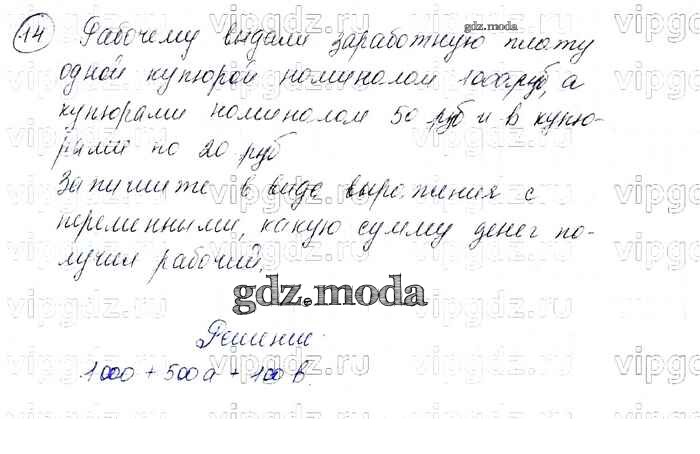 14 Рабочему выдали заработную плату
одной купюрой номиналом 1000 руб, а
купюрами номиналом 50 руб и в купю-
рами по 20 руб
Запишите в виде выражения с
переменными, какую сумму денег по-
лучил рабочий.
gdz.moda
Решение:
1000 + 500а + 100в.
gdz.moda
vipgdz.ru